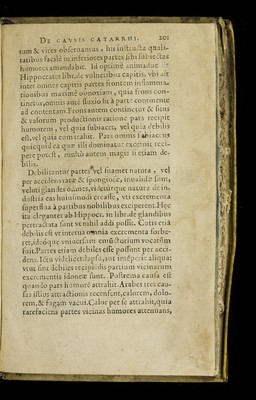 DE CAVSIS CATARRHI. 201
tum & vires obseruamus, his instructa quali-
tatibus facilè in inferiores partes sibi subiectas
humores amandabit. Id optimè animaduertit
Hippocrates libr. de vulneribus capitis, vbi ait
inter omnes capitis partes frontem inflamma-
tionibus maximè obnoxiam, quia frons con-
tinetur, omnis autē fluxio fit à parte continente
ad contentam. Frons autem continetur & sinus
& vasorum productionis ratione pars recipit
humorem, vel quia subiacet, vel quia debilis
est, vel quia eum trahit. Pars omnis subiacens
quicquid ea quæ illi dominatur excernit reci-
pere potest, multò autem magis si etiam de-
bilis.
Debilitantur partes vel suamet natura, vel
per accidens raræ & spongiosæ, inualidæ sunt,
veluti glandes omnes, videturque natura de in-
dustria eas huiusmodi creasse, vti excrementa
superflua à partibus nobilibus exciperent. Hæc
ita eleganter ab Hippocr. in libr. de glandibus
pertractata sunt vt nihil addi possit. Cutis etiā
debilis est vt intetus omnia excrementa sorbe-
ret, ideóque vniuersum emūctorium vocatum
fuit. Partes etiam debiles esse possunt per acci-
dens. Ictu videlicet, lapsu, aut intēperie aliqua:
vtut sint debiles recipiēdis partium vicinarum
excrementis idoneæ sunt. Postrema causa est
quando pars humorē attrahit. Arabes tres cau-
sas istius attractionis recensent, calorem, dolo-
rem, & fugam vacui. Calor per se attrahit, quia
rarefaciens partes vicinas humores attenuans,